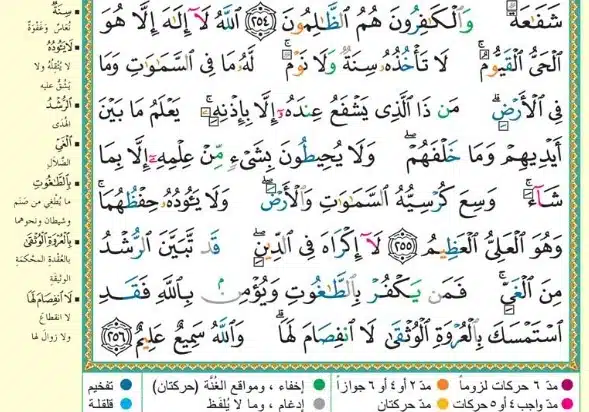 شَفَٰعَةٌۗ وَٱلْكَٰفِرُونَ هُمُ ٱلظَّٰلِمُونَ ٢٥٤ ٱللَّهُ لَآ إِلَٰهَ إِلَّا هُوَ
ٱلْحَىُّ ٱلْقَيُّومُۚ لَا تَأْخُذُهُۥ سِنَةٌ وَلَا نَوْمٌۚ لَّهُۥ مَا فِى ٱلسَّمَٰوَٰتِ وَمَا
فِى ٱلْأَرْضِۗ مَن ذَا ٱلَّذِى يَشْفَعُ عِندَهُۥٓ إِلَّا بِإِذْنِهِۦۚ يَعْلَمُ مَا بَيْنَ
أَيْدِيهِمْ وَمَا خَلْفَهُمْۖ وَلَا يُحِيطُونَ بِشَىْءٍ مِّنْ عِلْمِهِۦٓ إِلَّا بِمَا
شَآءَۚ وَسِعَ كُرْسِيُّهُ ٱلسَّمَٰوَٰتِ وَٱلْأَرْضَۖ وَلَا يَـُٔودُهُۥ حِفْظُهُمَاۚ
وَهُوَ ٱلْعَلِىُّ ٱلْعَظِيمُ ٢٥٥ لَآ إِكْرَاهَ فِى ٱلدِّينِۖ قَد تَّبَيَّنَ ٱلرُّشْدُ
مِنَ ٱلْغَىِّۚ فَمَن يَكْفُرْ بِٱلطَّٰغُوتِ وَيُؤْمِنۢ بِٱللَّهِ فَقَدِ
ٱسْتَمْسَكَ بِٱلْعُرْوَةِ ٱلْوُثْقَىٰ لَا ٱنفِصَامَ لَهَاۗ وَٱللَّهُ سَمِيعٌ عَلِيمٌ ٢٥٦
سِنَةٌ
نُعَاسٌ وَغَفْوَةٌ
لَا يَـُٔودُهُ
لا يُثْقِلُهُ ولا
يَشُقُّ عليه
ٱلرُّشْدُ
الهُدَى
ٱلْغَىِّ
الضَّلَالِ
بِٱلطَّٰغُوتِ
ما يُطْغِي من صَنَمٍ
وشيطان ونحوهما
بِٱلْعُرْوَةِ ٱلْوُثْقَىٰ
بالعُقْدَةِ المُحْكَمَةِ
الوثيقة
لَا ٱنفِصَامَ لَهَا
لا انقطاعَ
ولا زوالَ لها
مدّ ٦ حركات لزوماً مدّ ٢ أو ٤ أو ٦ جوازاً إخفاء ، ومواقع الغُنَّة (حركتان) تفخيم
مدّ واجب ٤ أو ٥ حركات مدّ حركتان إدغام ، وما لا يُلفَظ قلقلة